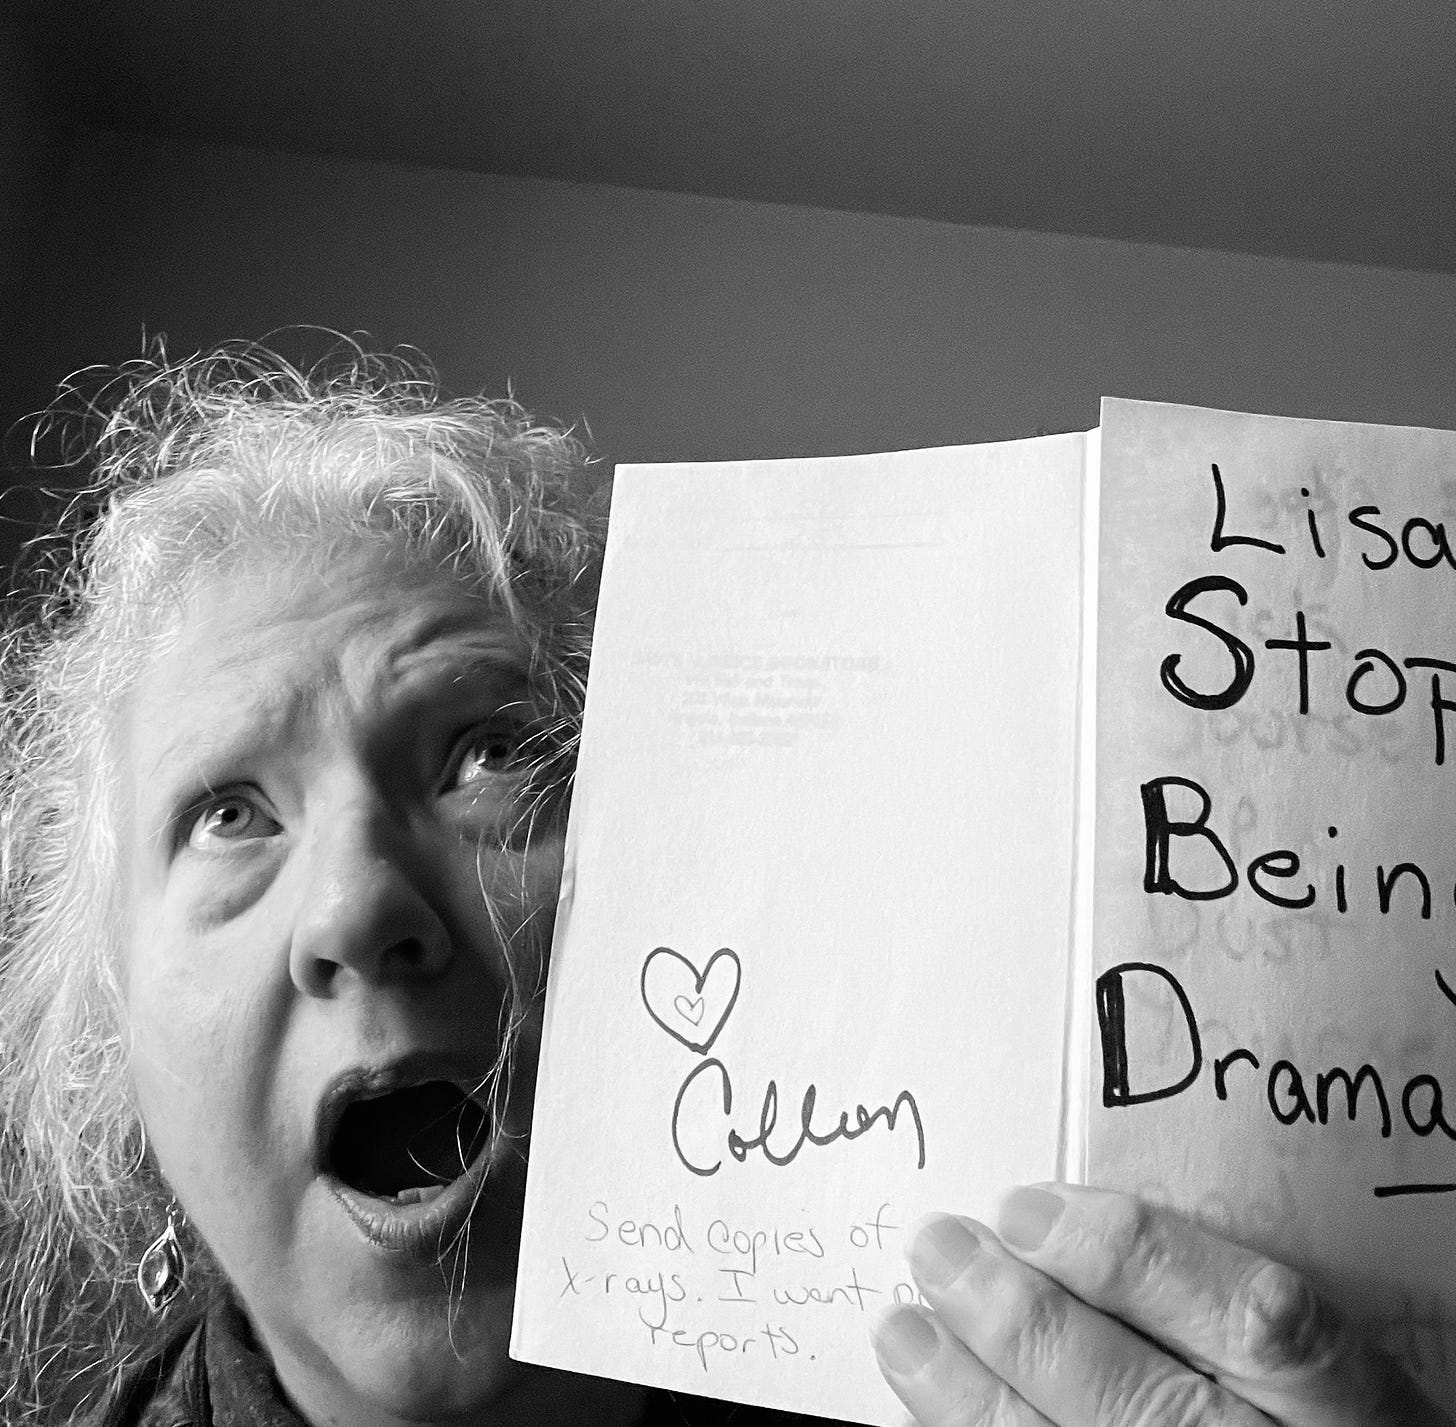 Colleen
Send copies of
X-rays. I want
reports.
Lisa
Stop
Being
Drama